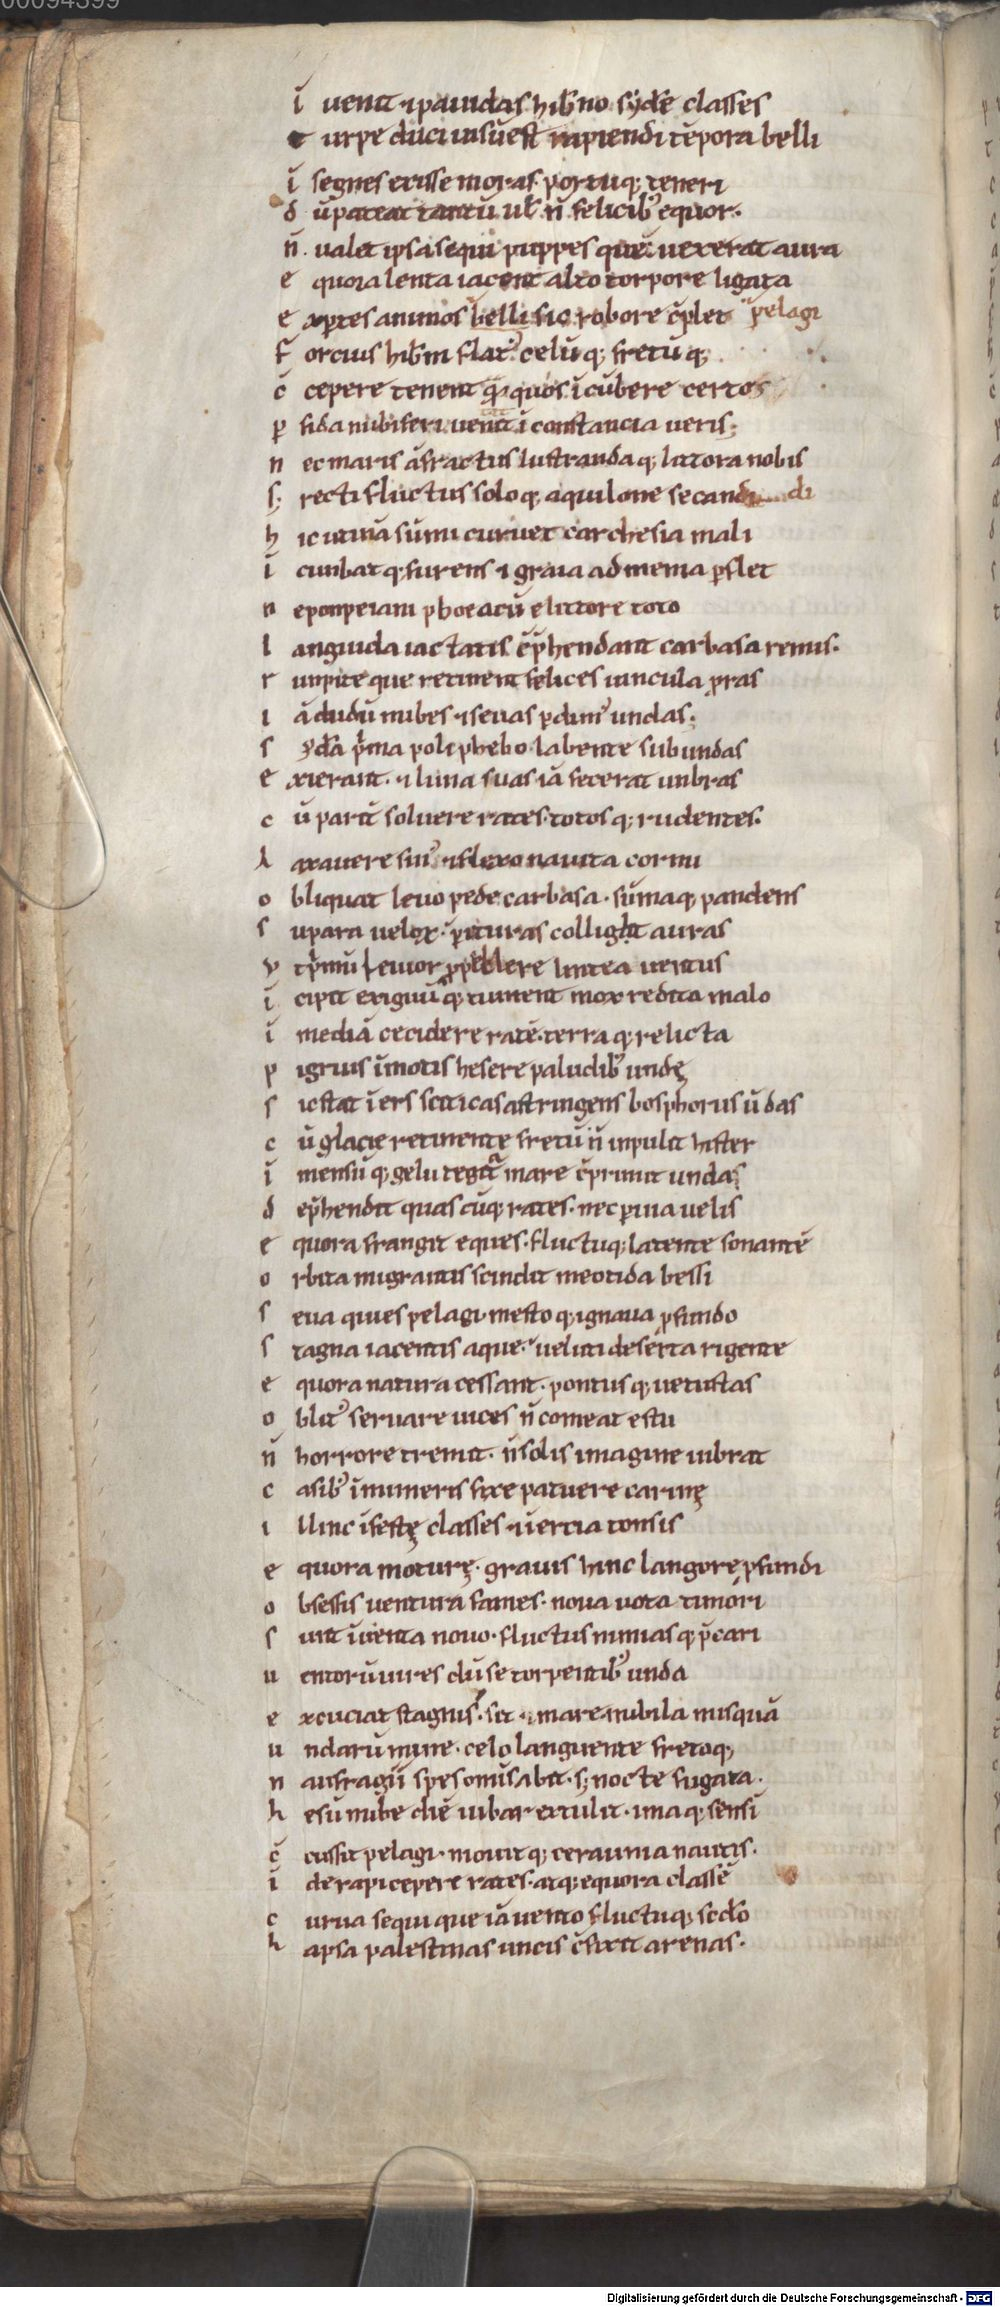 00094399
ī uenit ⁊ pauidas hib̄no syd̄e classes
t urpe duci uisū est rapiendi tēpora belli
ī segnes exisse moras. portuq; teneri
d ū pateat tantū uł n̄ felicib' equor.
n̄ . ualet ipsa sequi puppes quē uexerat aura
e quora lenta iacent alto torpore ligata
e xp̱tes animos belli sic robore c̄plet pelagi
f orcius hib̄ni flat' celū q; fretū q;
c̄ cepere tenent q̄ quos īcubere certos
p fida nubiferi uenit īconstancia ueris;
n ec maris āfractus lustranda q; littora nobis
s; recti fluctus solo q; aquilone secandi
h ic utinā sūmi curuet carchesia mali
ī cunbat q; furens ⁊ graia ad menia p̱flet
n e ponpeiani phoeacū e littore toto
l anguida iactatis c̄p̄hendant carbasa remis.
r unpite que retinent felices uincula p̱ras
i ā dudū nubes ⁊ seuas p̱dim' undas.
s yd̄a p̄ma poli phebo labente sub undas
e xierant. ⁊ luna suas iā fecerat unbras
c ū parit̄ soluere rates. totos q; rudentes.
l axauere sin' ⁊ flexo nauita cornu
o bliquat leuo pede carbasa. sūmaq; pandens
s upara uelox. p̱ituras colligit auras
v t p̄mū leuior p̱pellere lintea uentus
ī cipit exiguū q; tument mox reddita malo
ī mediā cecidere ratē. terra q; relicta
p igruis īmotis hesere paludib' undę
s ic stat īers sciticas astringens bosphorus ūdas
c ū glacie retinente fretū n̄ inpulit hister
ī mensū q; gelu tegit̄ mare c̄primit undas
d ep̄hendit quas cūq; rates. nec p̱uia uelis
e quora frangit eques. fluctuq; latente sonantē
o rbita migrantis scindit meotida bessi
s eua quies pelagi. mesto q; ignaua p̱fundo
s tagna iacentis aque. ueluti deserta rigente
e quora natura cessant. pontus q; uetustas
o blit' seruare uices n̄ comeat estu
n̄ horrore tremit. n̄ solis imagine uibrat
c asib' īnumeris fixe patuere carinę
i llinc īfestę classes ⁊ īertia tonsis
e quora moturę. grauis hinc langore p̱fundi
o bsessis uentura fames. noua uota timori
s unt īuenta nouo. fluctus nimias q; p̄cari
u entorū uires dū se torpentib' unda
e xcuciat stagnis. sit ⁊ mare. nubila nusquā
u ndarū mine. celo languente fretoq;
n aufragii spes omīs abit. s; nocte fugata.
h esū nube diē iubar extulit. imaq; sensī
c̄ cussit pelagi. mouit q; ceraunia nautis.
ī de rapi cepere rates. atq; equora classē
c urua sequi que iā uento fluctuq; scd̄o
h apsa palestinas uncis c̄fixit arenas.
Digitalisierung gefördert durch die Deutsche Forschungsgemeinschaft - DFG